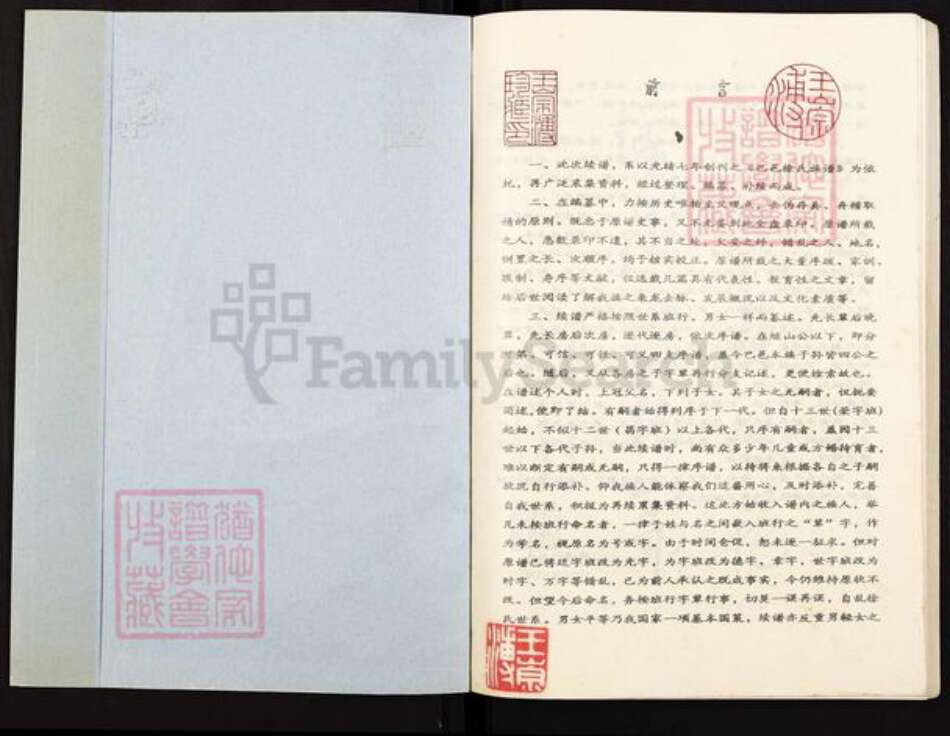 前言
一、此次续谱，系以光绪七年创刊之《巴邑徐氏族谱》为依
托，再广泛采集资料，经过整理、编纂、补续而成。
二、在编纂中，力按历史唯物主义观点，去伪存真、弃糟取
精的原则。既忠于原谱史事，又不无鉴别地全盘录印。原谱所载
之人，悉数录印不遗，其不当之处、欠妥之外，错乱之人、地名，
倒置之长、次顺序，均予核实校正。原谱所载之大量序跋、家训、
族制、寿序等文献，仅选载几篇具有代表性、教育性之文章，留
给后世阅读了解我族之来龙去脉、发展概况以及文化素质等。
三、续谱严格按照世系班行、男女一样而纂述。先长辈后晚
辈，先长房后次房，逐代逐房，依次序谱。在 山公以下，即分
可第、可信、可仕、可义四支序谱，盖今巴邑本族子孙皆四公之
后也。随后，又从各房之子字辈再行分支记述，更便检索故也。
在谱述个人时，上冠父名，下列子女。其子女之无嗣者，仅扼要
简述，便即了结。有嗣者始得列序于下一代。但自十三世（荣字班）
起始，不似十二世（昌字班）以上各代，只序有嗣者，盖因十三
世以下各代子孙，当此续谱时，尚有众多少年儿童或方婚待育者，
难以断定有嗣或无嗣，只得一律序谱，以待将来根据各自之子嗣
状况自行添补。仰我族人能体察我们这番用心，及时添补，完善
自我世系，积极为再续累集资料。这此方始收入谱内之族人，举
凡未按班行命名者，一律于姓与名之间嵌入班行之“辈”字，作
为学名，视原名为号或字。由于时间仓促，恕未逐一征求。但对
原谱已将廷字班改为光字，为字班改为德字、章字，世字班改为
时字、万字等错乱，已为前人承认之既成事实，今仍维持原状不
改。但望今后命名，务按班行字辈行事，切莫一误再误，自乱徐
氏世系。男女平等乃我国家一项基本国策，续谱亦反重男轻女之
FamilySearch
猶他家
譜學會
收藏